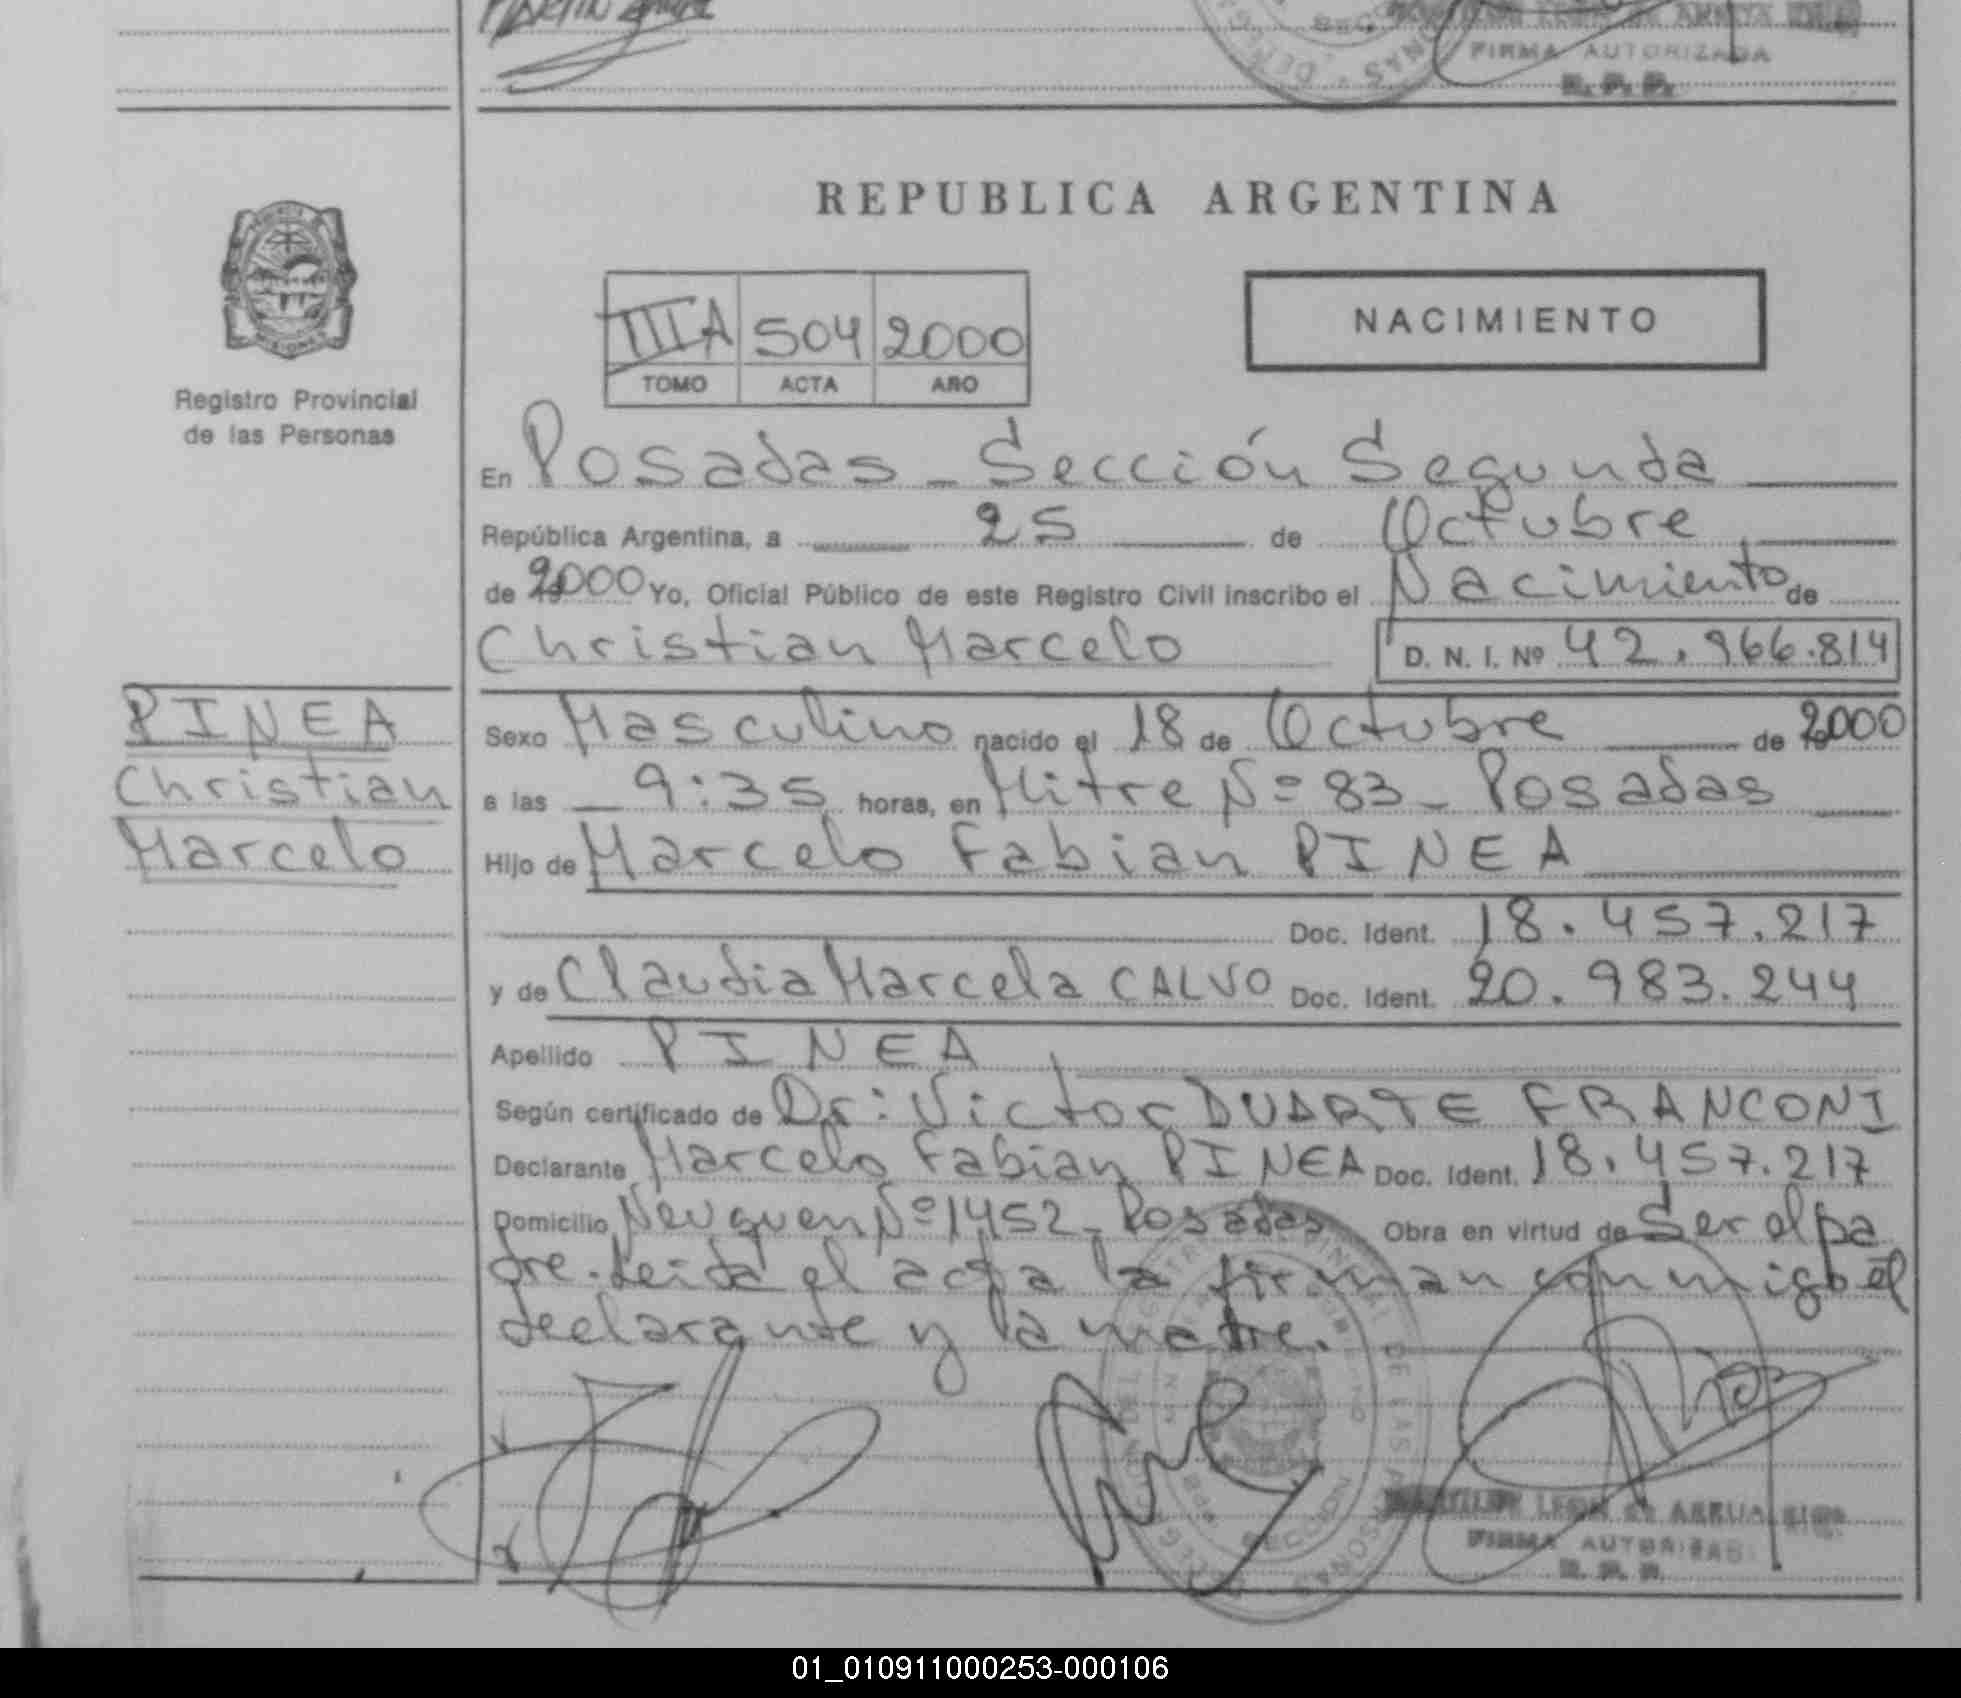 FIRMA AUTORIZADA
R. P. P.
REPUBLICA ARGENTINA
NACIMIENTO
IIIA 504 2000
TOMO ACTA AÑO
Registro Provincial
de las Personas
En Posadas - Sección Segunda
República Argentina, a 25 de Octubre
de 2000 Yo, Oficial Público de este Registro Civil inscribo el Nacimiento de
Christian Marcelo D. N. I. Nº 42.966.814
PINEA
Christian
Marcelo
Sexo Masculino nacido el 18 de Octubre de 2000
a las 9:35 horas, en Mitre Nº 83 - Posadas
Hijo de Marcelo Fabian PINEA
Doc. Ident. 18.457.217
y de Claudia Marcela CALVO Doc. Ident. 20.983.244
Apellido PINEA
Según certificado de Dr: Victor DUARTE FRANCONI
Declarante Marcelo Fabian PINEA Doc. Ident. 18.457.217
Domicilio Neuquen Nº 1452 - Posadas Obra en virtud de Ser el pa
dre. Leida el acta la firman conmigo el
declarante y la madre.
FIRMA AUTORIZADA
R. P. P.
01_010911000253-000106